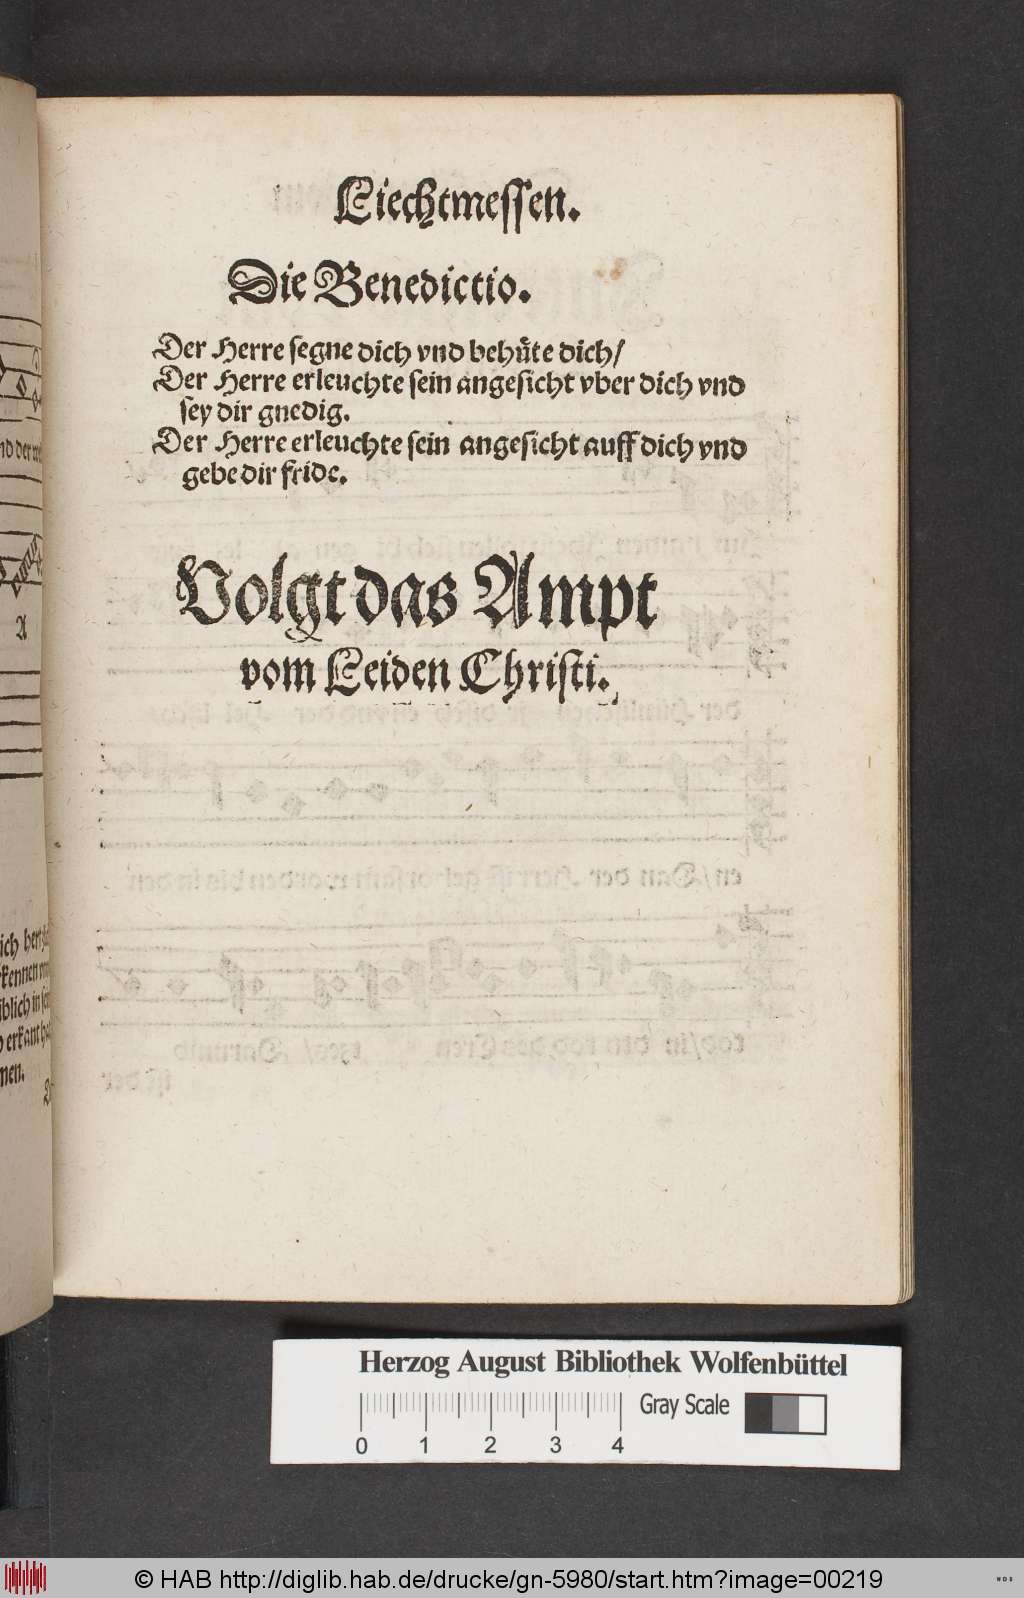 Liechtmessen.
Die Benedictio.
Der Herre segne dich vnd behuͤte dich/
Der Herre erleuchte sein angesicht vber dich vnd
sey dir gnedig.
Der Herre erleuchte sein angesicht auff dich vnd
gebe dir fride.
Volgt das Ampt
vom Leiden Christi.
Herzog August Bibliothek Wolfenbüttel
Gray Scale
0 1 2 3 4
© HAB http://diglib.hab.de/drucke/gn-5980/start.htm?image=00219